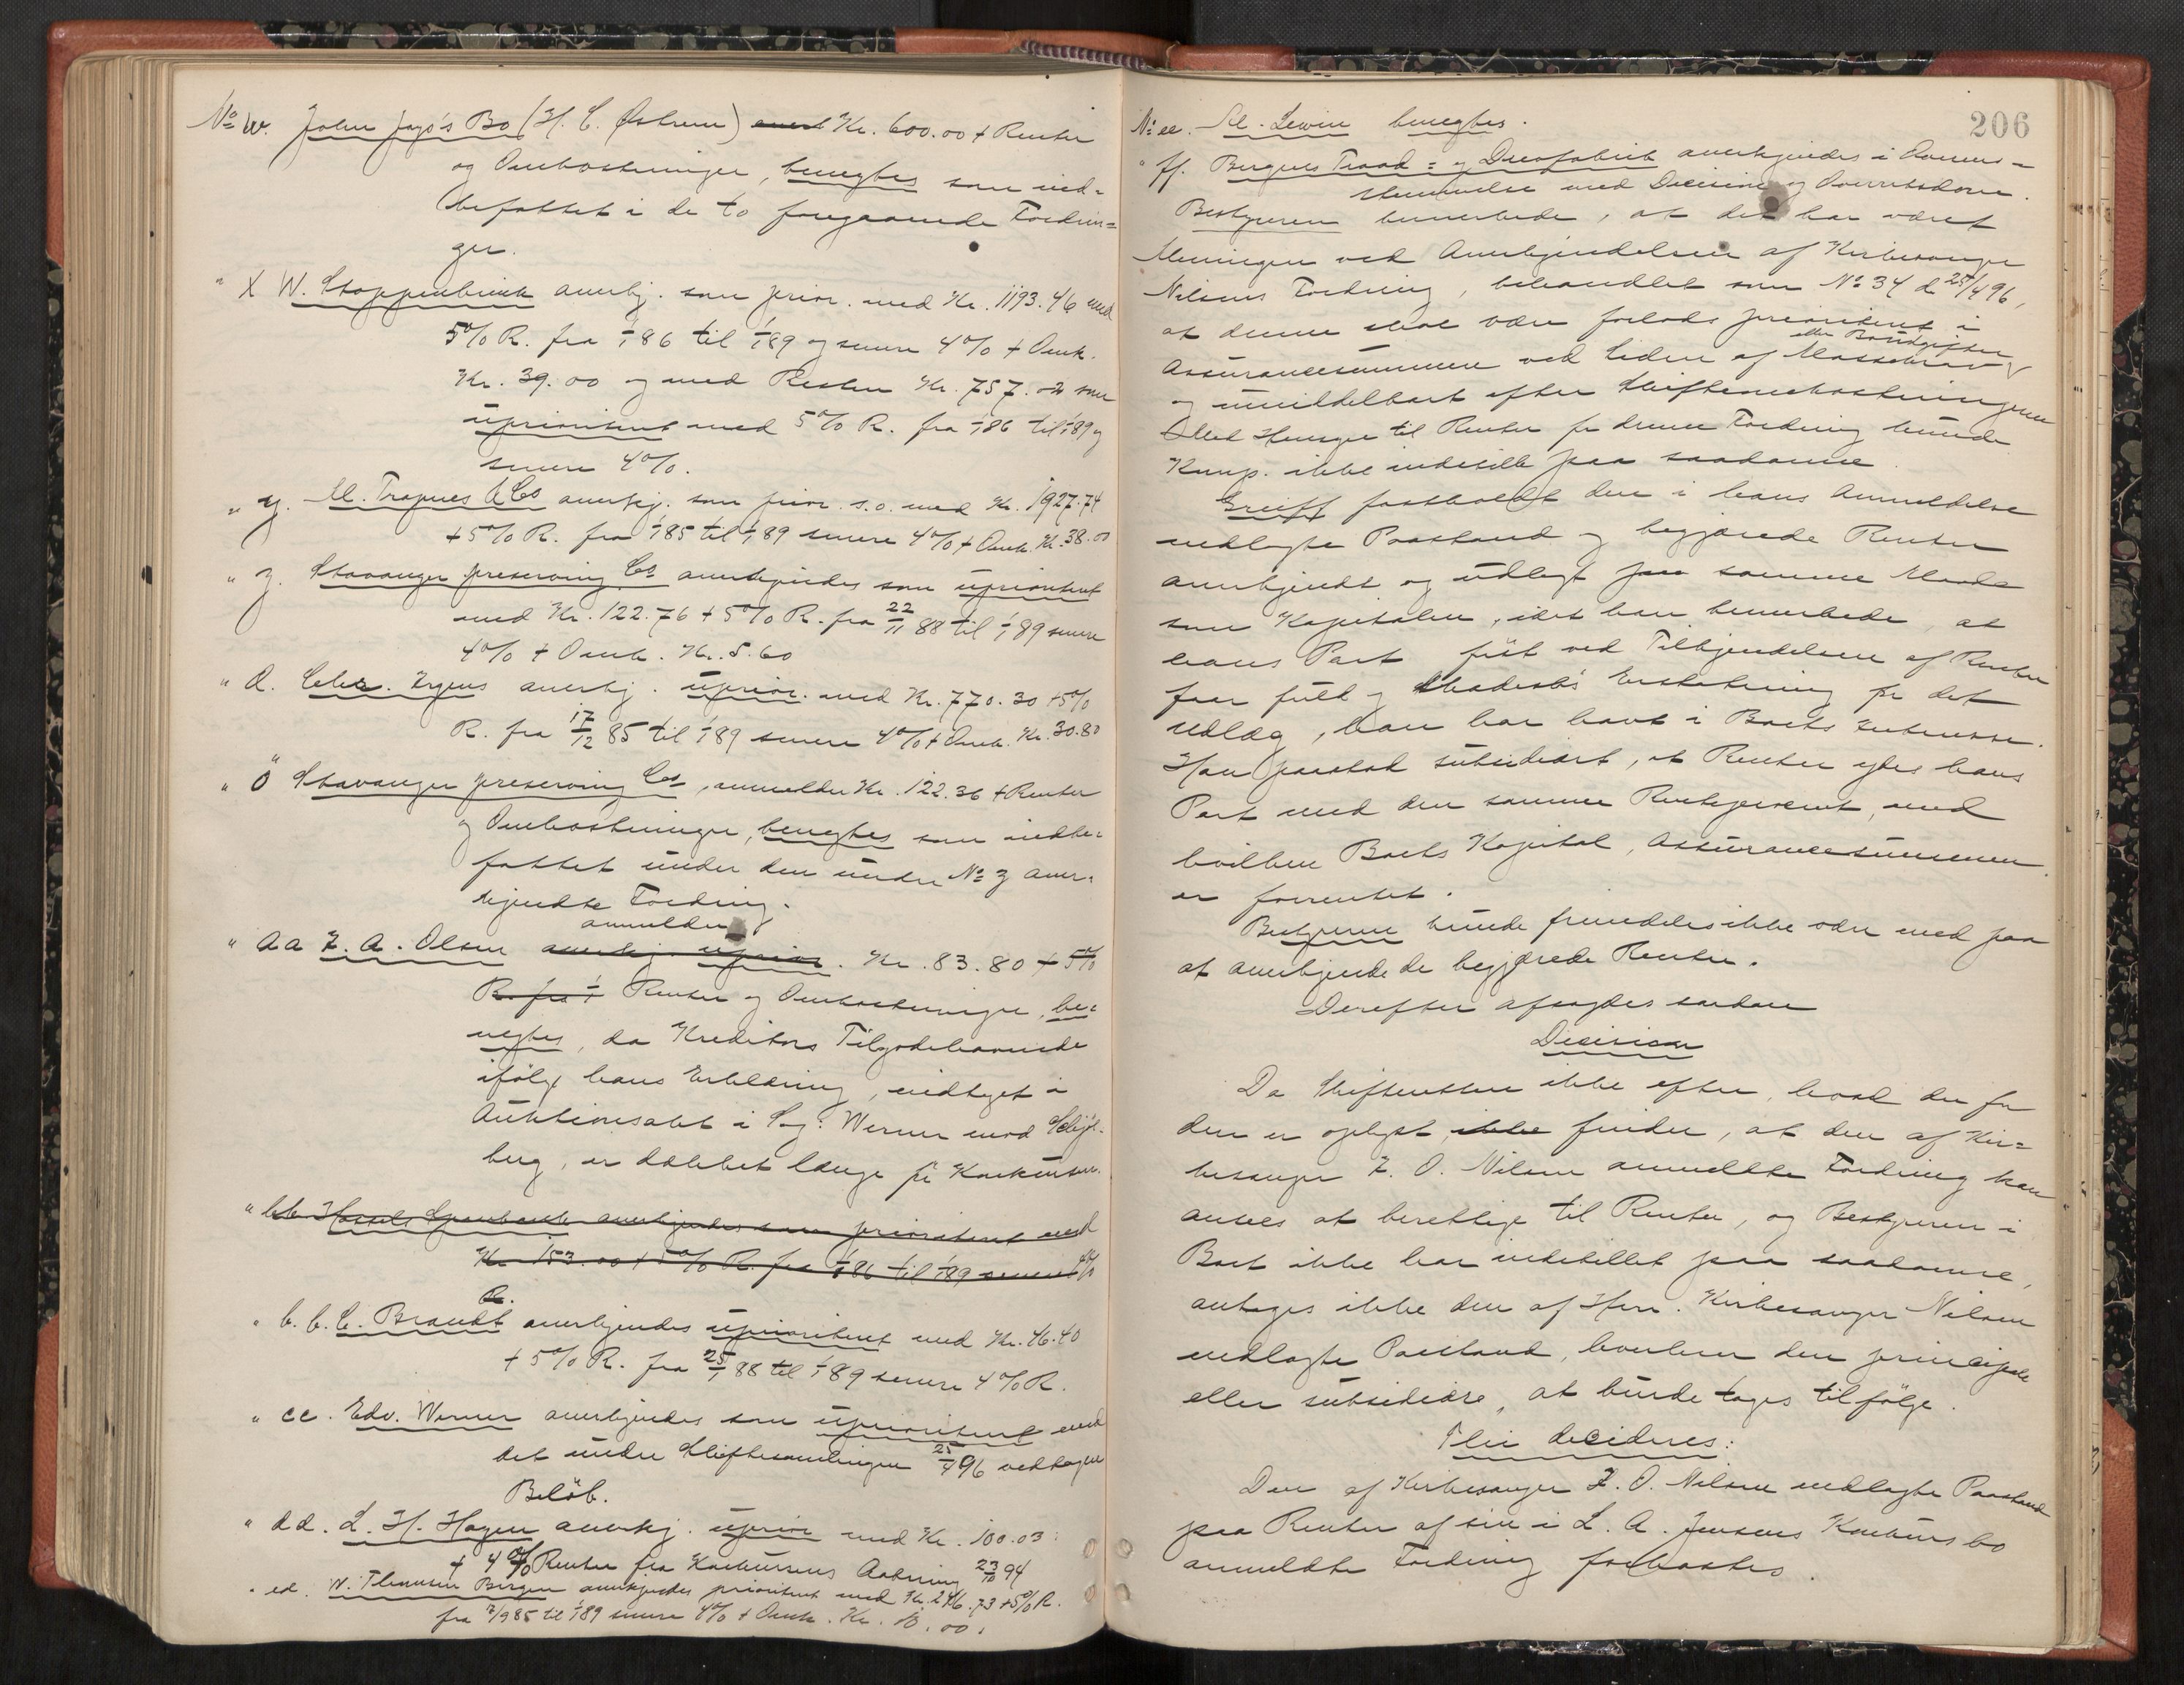 No w. John Jago's Bo (H. C. Østrem) Kr. 600.00 + Renter
og Omkostninger, benegtes som ind-
befattet i de to foregaaende Fordrin=
ger.
" X W. Stoppenbrink anerkj. som prior. med Kr. 1193.46 med
5% R. fra 1/1 86 til 1/1 89 og senere 4% + Omk.
Kr. 39.00 og med Resten Kr. 757.02 som
uprioritert med 5% R. fra 1/1 86 til 1/1 89 og
senere 4%.
" y. M. Tranæs & Co anerkj. som prior. s.o. med Kr. 1927.74
+ 5% R. fra 1/1 85 til 1/1 89 senere 4% + Omk. Kr. 38.00
" z. Stavanger preserving Co anerkjendes som uprioritert
med Kr. 122.76 + 5% R. fra 22/11 88 til 1/1 89 senere
4% + Omk. Kr. 5.60
" Chr. Irgens anerkj. uprior. med Kr. 770.30 + 5%
R. fra 17/12 85 til 1/1 89 senere 4% + Omk. Kr. 30.80
" ö Stavanger preserving Co, anmelder Kr. 122.36 + Renter
og Omkostninger, benegtes som indbe-
fattet under den under No z aner-
kjendte Fordring.
anmelder
" aa Z. A. Olsen anerkj. uprior. Kr. 83.80 + 5%
R. fra 1/1 Renter og Omkostninger, be-
negtes, da Kreditors Tilgodehavende
ifølge hans Erklæring, indtaget i
Auktionsakt i Sag: Werner mod Schjöl-
berg, er dækket længe før Konkursen.
" bb. Sparebank anerkjendes som prioritert med
Kr 153.00 + 5% R. fra 1/1 86 til 1/1 89 senere 4%
R.
" b.b. C. Brandt anerkjendes uprioritert med Kr. 46.40
+ 5% R. fra 25/1 88 til 1/1 89 senere 4% R.
" cc. Edv. Werner anerkjendes som uprioritert med
det under Skiftesamlingen 25/4 96 vedtagne
Beløb.
" dd. L. H. Hagen anerkj. uprior med Kr. 100.03
+ 4% Renter fra Konkursens Aabning 23/10 94
" ed. W. Bergen anerkjendes prioritert med Kr. 246.73 + 5% R.
fra 7/9 85 til 1/1 89 senere 4% + Omk. Kr. .00.
206
No ee. M. Lewin benegtes.
" ff. Bergens Traad= og Drevfabrik anerkjendes i Overens=
stemmelse med Decision og Overretsdom.
Bestyreren bemerkede, at det har været
Meningen ved Anerkjendelsen af Kirkesanger
Nilsens Fordring, behandlet som No 34 d 25/4 96,
at denne skal være forlods prioritert i
eller Boudgifter
Assurancesummen ved Siden af Massekrav
og umiddelbart efter Skifteomkostningerne
Med Hensyn til Renter for denne Fordring kunde
Komp. ikke indestille paa saadanne.
Greiff fastholdt den i hans Anmeldelse
nedlagte Paastand og begjærede Renter
anerkjendt og udlagt paa samme Maade
som Kapitalen, idet han bemerkede, at
hans Part først ved Tilkjendelsen af Renter
faar fuld og skadesløs Erstatning for det
Udlæg, han har havt i Boets Interesse.
Han paastod subsidiært, at Renter ydes hans
Part med den samme Renteprocent, med
hvilken Boets Kapital, Assurancesummen
er forrentet.
Bestyreren kunde fremdeles ikke være med paa
at anerkjende de begjærede Renter.
Derefter afsagdes saadan
Decision
Da Skifteretten ikke efter, hvad der for
den er oplyst, ikke finder, at den af Kir=
kesanger Z. O. Nilsen anmeldte Fordring kan
ansees at berettige til Renter, og Bestyreren i
Boet ikke har indstillet paa saadanne,
antages ikke den af Hrr. Kirkesanger Nilsen
nedlagte Paastand, hverken den principale
eller subsidiære, at burde tages tilfølge.
Thi decideres:
Den af Kirkesanger Z. O. Nilsen nedlagte Paastand
paa Renter af sin i L. A. Jensens Konkursbo
anmeldte Fordring forkastes.